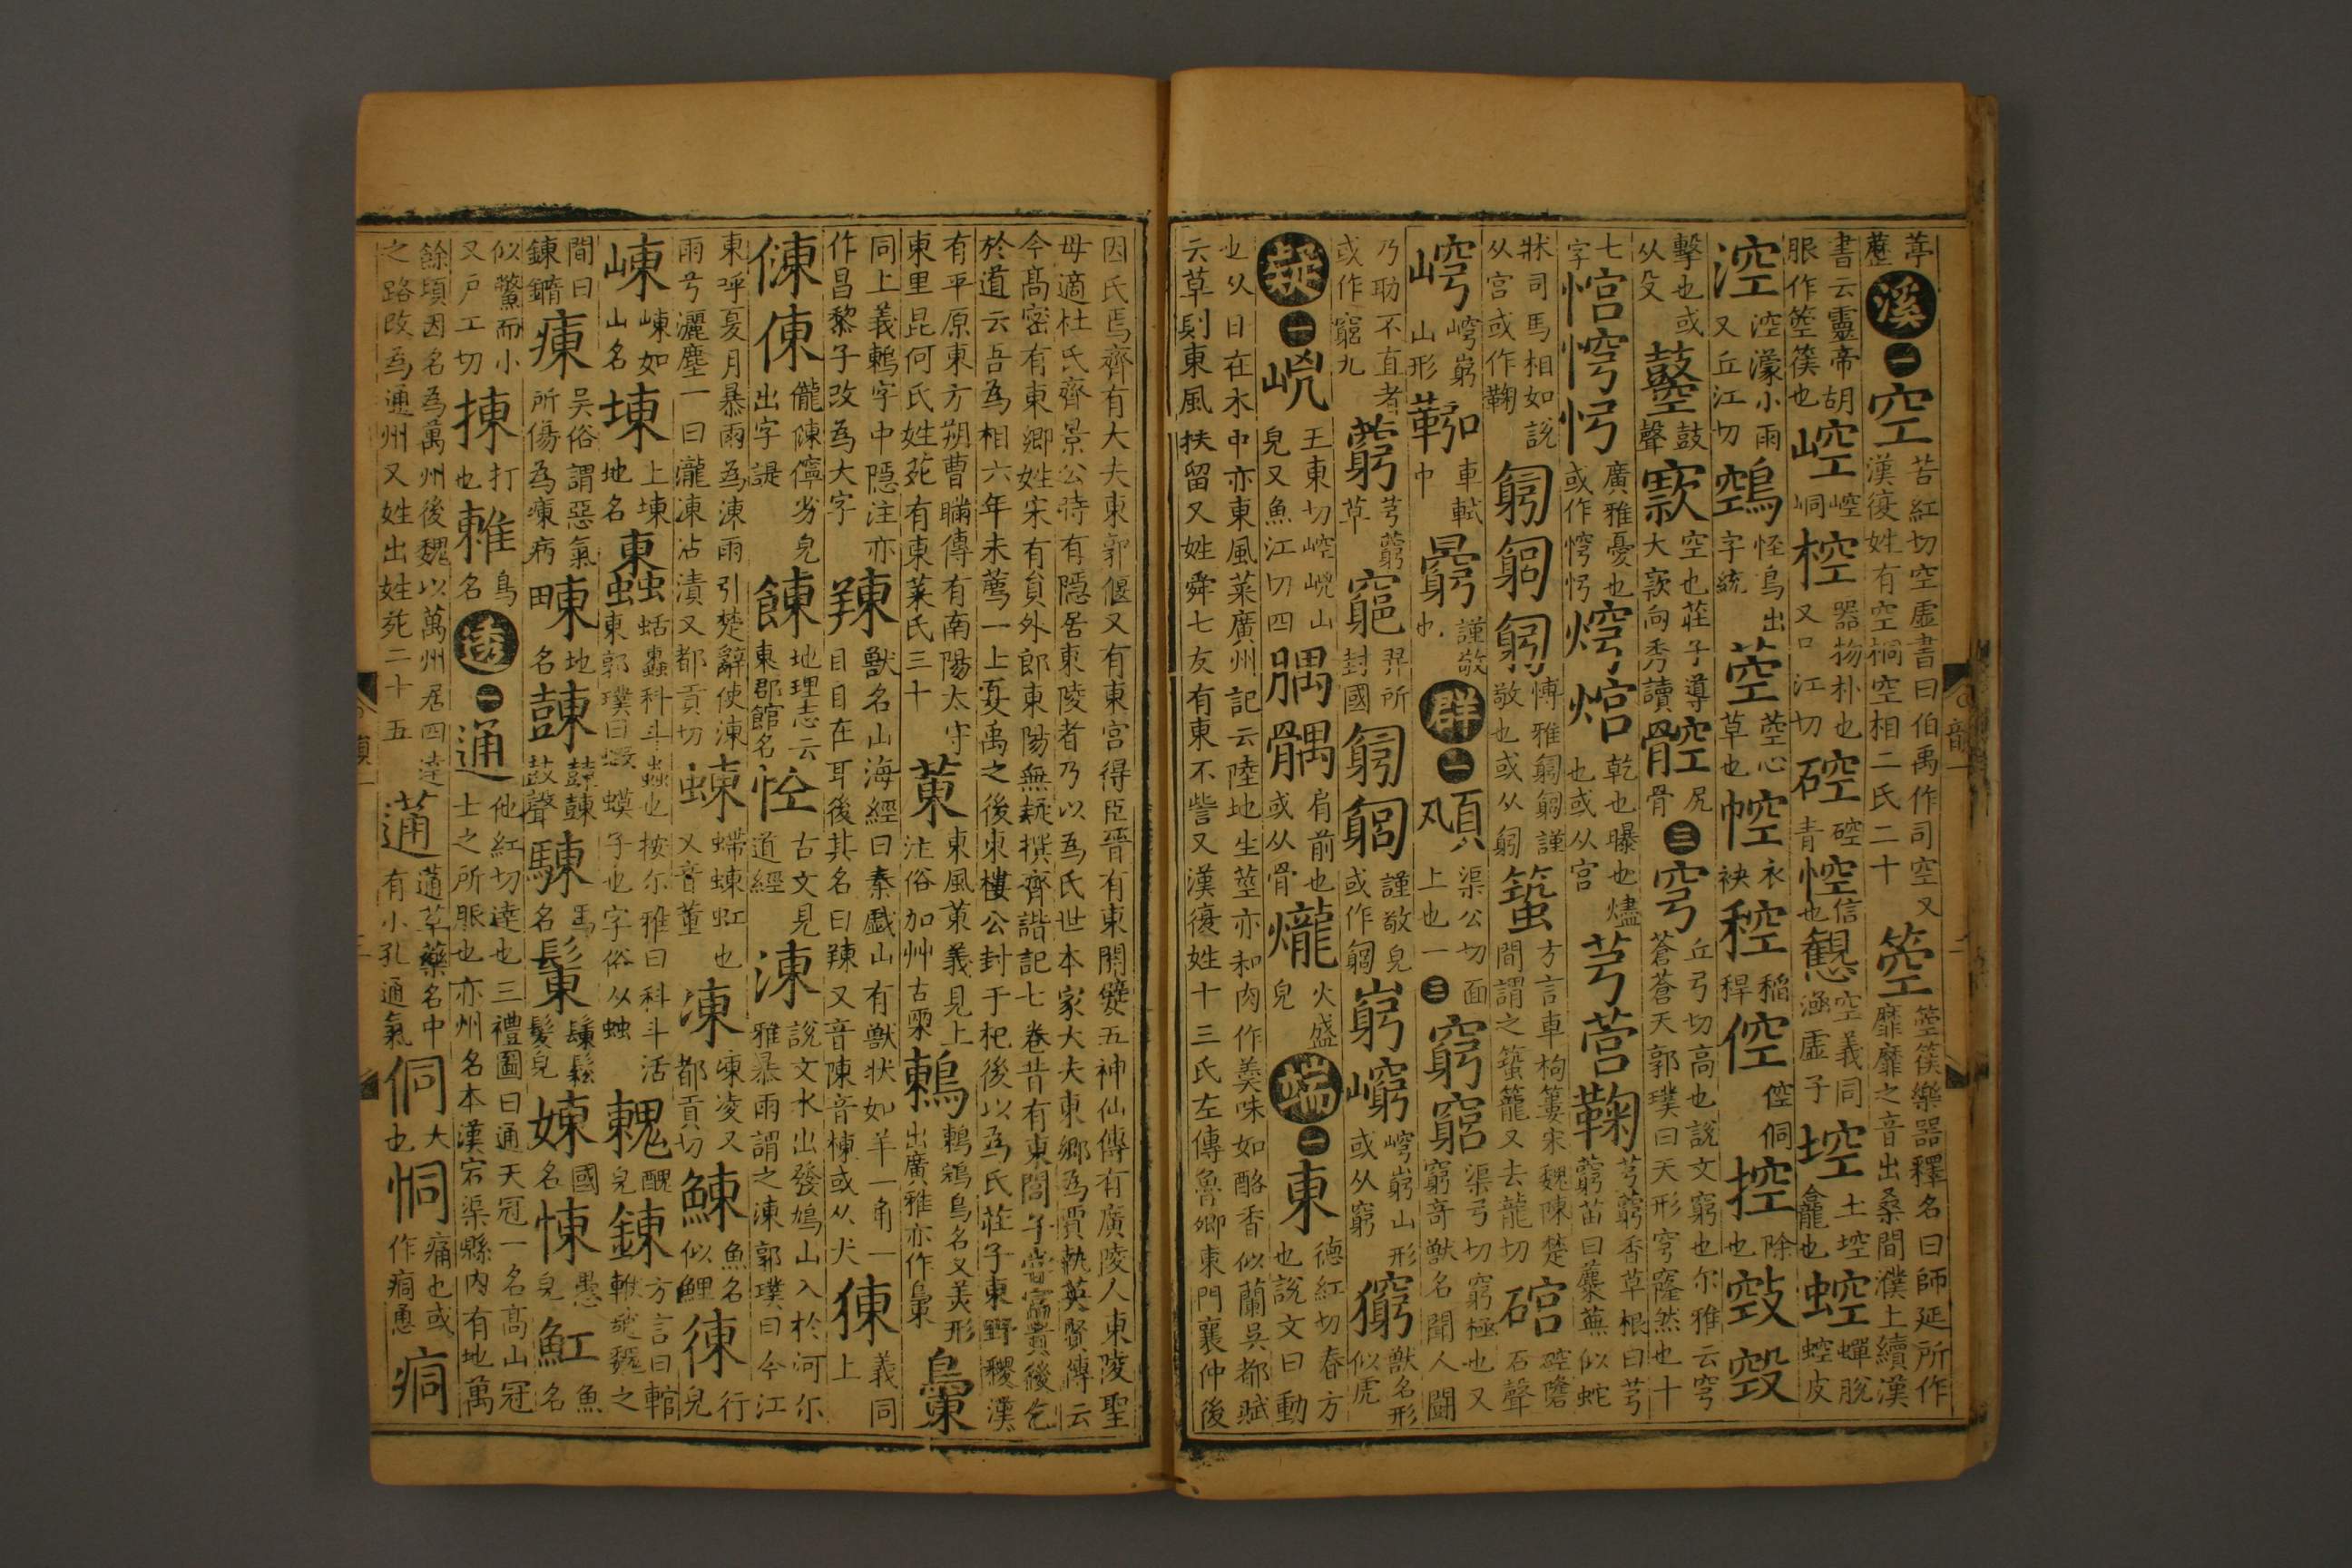 葶藶溪一空苦紅切空虛書曰伯禹作司空又漢復姓有空桐空相二氏二十箜箜篌樂器釋名曰師延所作靡靡之音出桑間濮上續漢
書云靈帝胡服作箜篌也崆崆峒椌器物朴也又口江切硿硿青悾信也憩空義同涵虛子埪土埪龕也蛵蟬脫蛵皮
涳涳濛小雨又丘江切鵼怪鳥出字統䓯䓯心草也㤟衣袂稕稻稈倥倥侗控除也
擊也或从殳鼓聲窾空也莊子導大窾向秀讀髐尻骨三穹丘弓切高也說文窮也尔雅云穹蒼蒼天郭璞曰天形穹窿然也十
七字悺悙㤨廣雅憂也或作悙㤨焪焢乾也曝也燼也或从宮芎营鞠芎藭香草根曰芎藭苗曰蘪蕪似蛇
牀司馬相如說从宮或作鞠匑匔匑博雅匔匔謹敬也或从匑䇬方言車枸簍宋魏陳楚間謂之䇬籠又去龍切硿硿嵱石聲
嵱嵱嵏山形鞃車軾中㝨謹敬也群一㼧渠公切面上也一三窮窮渠弓切窮極也又窮奇獸名聞人鬪
乃助不直者或作窮九藭芎藭草窮羿所封國匑匔謹敬皃或作匔嵏嵏嵱嵏山形或从窮獩獸名形似虎
疑一㟅五東切崆㟅山皃又魚江切四髃髃肩前也或从骨㸊火盛皃端一東德紅切春方也說文曰動
也从日在木中亦東風菜廣州記云陸地生莖亦和肉作羹味如酪香似蘭吳都賦云草則東風扶留又姓舜七友有東不訾又漢復姓十三氏左傳魯卿東門襄仲後
因氏焉齊有大夫東郭偃又有東宮得臣晉有東關嬖五神仙傳有廣陵人東陵聖
母適杜氏齊景公時有隱居東陵者乃以為氏世本宋大夫東鄉為賈執英賢傳云
今高密有東鄉姓宋有員外郎東陽無疑撰齊諧記七卷昔有東閭子嘗富貴後乞
於道云吾為相六年未薦一上夏禹之後東樓公封于杞後以為氏莊子東野稷漢
有平原東方朔曹瞞傳有南陽太守東里昆何氏姓苑有東萊氏三十菄東風菄義見上注俗加艸鶇古粟鶇鵍鳥名又美形出廣雅亦作鶇
同上義鶇字中隱注亦作昌黎子改為大字䍶獸名山海經曰秦戲山有獸狀如羊一角一目目在耳後其名曰䍶又音陳音棟或从犬㹂義同上
倲倲儱倲儜劣皃出字諟餗地理志云東郡館名㤏古文見道經涷說文水出發鳩山入於河尔雅暴雨謂之涷郭璞曰今江
東呼夏月暴雨為涷雨引楚辭使涷雨兮灑塵一曰瀧涷沾漬又都貢切蝀螮蝀虹也又音董凍凍凌又都貢切鯟魚名似鯉徚行皃
崠崠如山名埬上埬地名䖢蛞蟲科斗蟲也按尔雅曰科斗活東郭璞曰蝦蟆子也字俗从蚰䰤醜皃鍊方言曰輨軑趙魏之
間曰鍊鐗㾋吳俗謂惡氣所傷為㾋病䍶地名䵔䵔鼓聲駷馬名鬉鬉鬆髮皃娻國名㥏愚皃魟魚名
似鱉而小又戶工切揀打也䳉鳥名透一通他紅切達也三禮圖曰通天冠一名高山冠士之所服也亦州名本漢宕渠縣內有地萬
餘頃因名為萬州後魏以萬州居四達之路改為通州又姓出姓苑二十五蓪蓪草藥名中有小孔通氣侗大也恫痛也或作痌𢠿痌